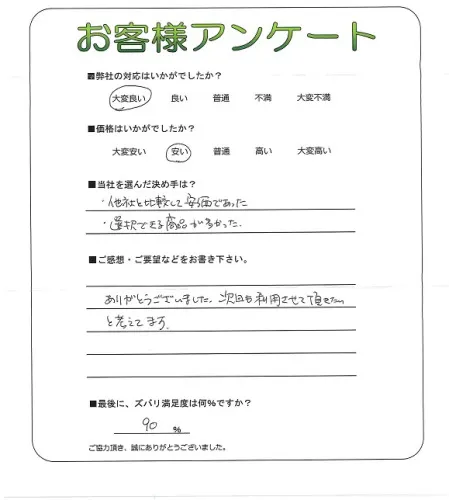 お客様アンケート
■弊社の対応はいかがでしたか？
大変良い 良い 普通 不満 大変不満
■価格はいかがでしたか？
大変安い 安い 普通 高い 大変高い
■当社を選んだ決め手は？
・他社と比較して安価であった
・選択できる商品が多かった.
■ご感想・ご要望などをお書き下さい。
ありがとうございました。次回も利用させて頂きたい
と考えてます。
■最後に、ズバリ満足度は何％ですか？
90 ％
ご協力頂き、誠にありがとうございました。